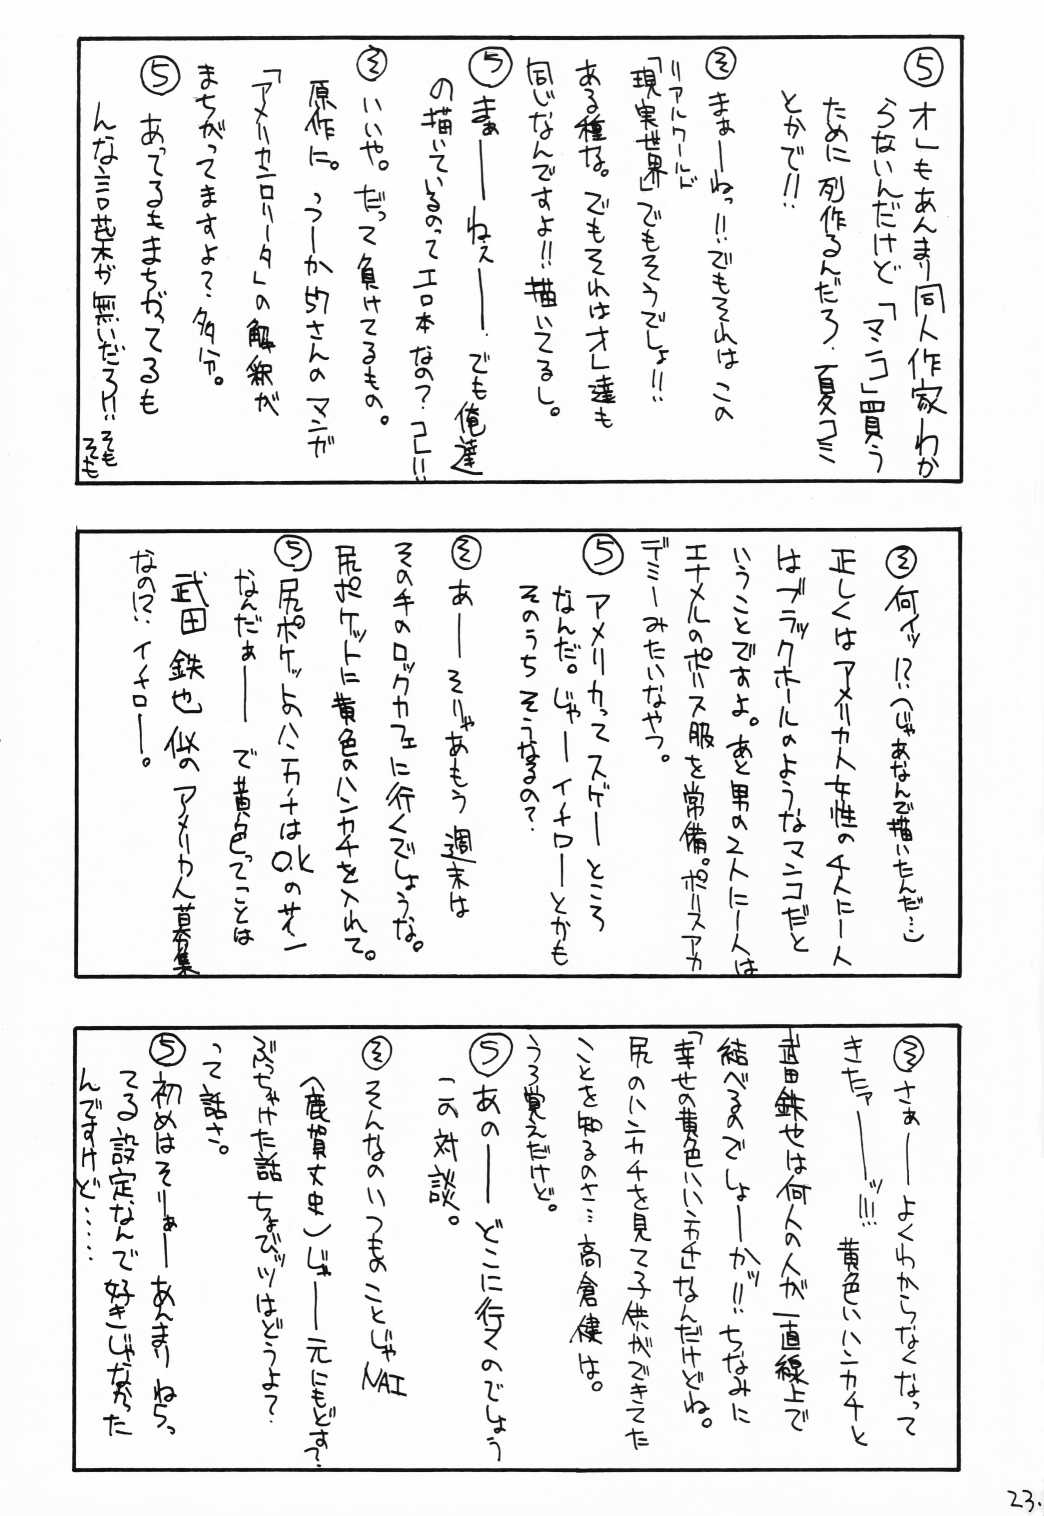 ⑤ オレもあんまり同人作家わか
らないんだけど「マンコ」買う
ために列作るんだろ.夏コミ
とかで!!
③ まぁーねっ!!でもそれはこの
リアルワールド
「現実世界」でもそうでしょ!!
ある種な。でもそれはオレ達も
同じなんですよ!!描いてるし。
⑤ まぁーねぇー.でも俺達
の描いているのってエロ本なの?コレ!!
③ いいや。だって負けてるもの。
原作に。つーか⑤さんのマンガ
「アメリカンロリータ」の解釈が
まちがってますよ?多分。
⑤ あってるもまちがってるも
んな言葉が無いだろ!!そも
そも
③ 何ィッ!?(じゃあなんで描いたんだ…)
正しくはアメリカ人女性の千人に一人
はブラックホールのようなマンコだと
いうことですよ。あと男の2人に一人は
エナメルのポリス服を常備。ポリスアカ
デミーみたいなやつ。
⑤ アメリカってスゲーところ
なんだ。じゃーイチローとかも
そのうちそうなるの?
③ あーそりゃあもう週末は
その手のロックカフェに行くでしょうな。
尻ポケットに黄色のハンカチを入れて。
⑤ 尻ポケットのハンカチはO.Kのサイン
なんだぁーで黄色ってことは
武田鉄也似のアメリカ人募集
なの!?イチロー。
③ さぁーよくわからなくなって
きたァーッ!!!黄色いハンカチと
武田鉄也は何人の人が一直線上で
結べるのでしょーかッ!!ちなみに
「幸せの黄色いハンカチ」なんだけどね。
尻のハンカチを見て子供ができてた
ことを知るのさ…高倉健は。
うろ覚えだけど。
⑤ あのーどこに行くのでしょう
この対談。
③ そんなのいつものことじゃNAI
(鹿賀丈史)じゃー元にもどす?
ぶっちゃけた話ちょびッツはどうよ?
って話さ。
⑤ 初めはそりゃぁーあんまりねらっ
てる設定なんで好きじゃなかった
んですけど……
23.